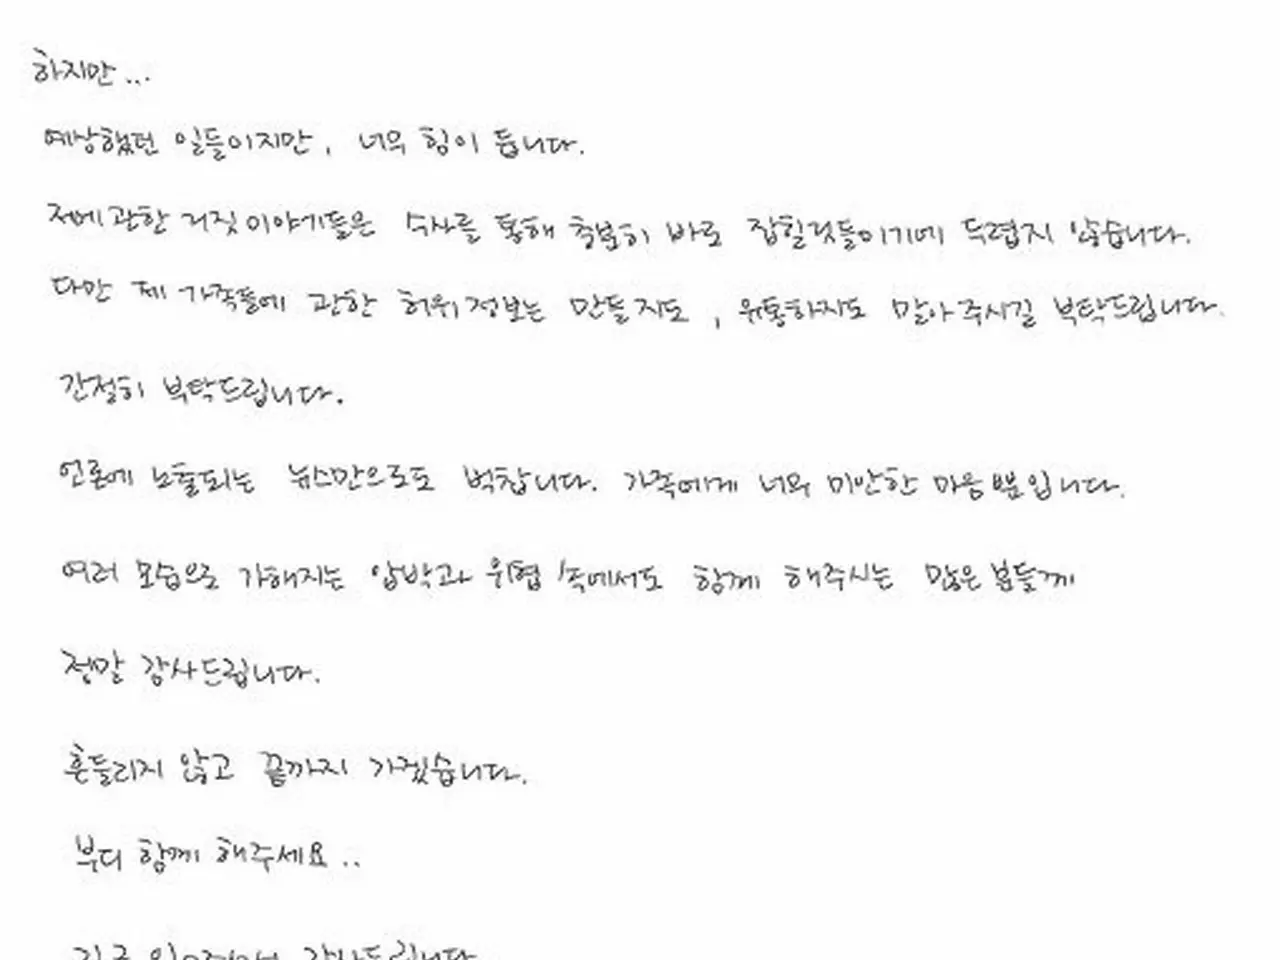 하지만...
예상했던 일들이지만, 너무 힘이 듭니다.
저에 관한 거짓 이야기들은 수사를 통해 충분히 바로 잡힐것들이기에 두렵지 않습니다.
다만 제 가족들에 관한 허위 정보는 만들지도, 유통하지도 말아 주시길 부탁드립니다.
간절히 부탁드립니다.
언론에 노출되는 뉴스만으로도 벅찹니다. 가족에게 너무 미안한 마음뿐입니다.
여러 모습으로 가해지는 압박과 위협 속에서도 함께 해주시는 많은 분들께
정말 감사드립니다.
흔들리지 않고 끝까지 가겠습니다.
부디 함께 해주세요..
감사드립니다